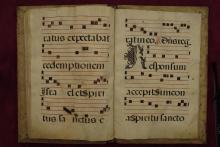 ratus expectabat
redemptionem
Israel et spiri
tus sanctus e
rat in eo
Responsum
accepit simeon
a spiritu sancto